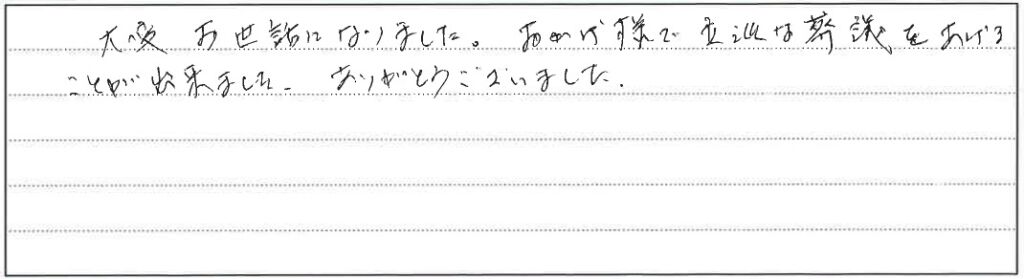 大変お世話になりました。おかげ様で立派な葬議をあげる
ことが出来ました。ありがとうございました.